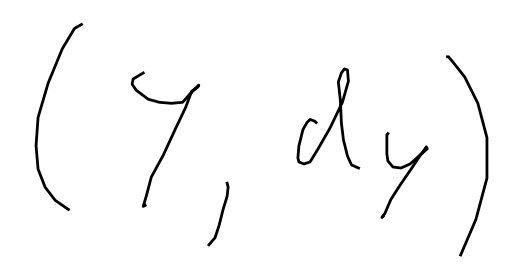 (y, dy)